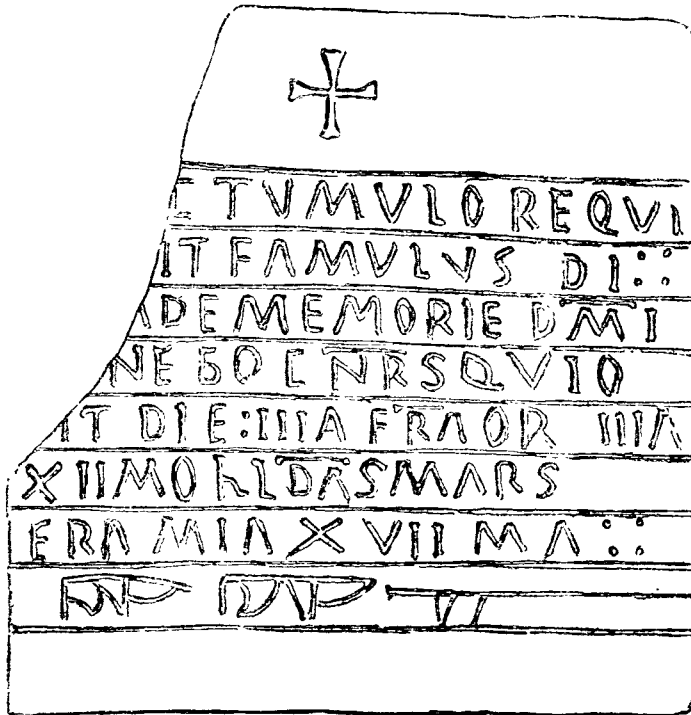 C TVMVLO REQVI
IT FAMVLVS DI
ADE MEMORIE DMI
NE BO C NRS QVIO
IT DIE : IIIA FRA OR IIIA
XIIMO KLDAS MARS
ERA MIA XVII MA